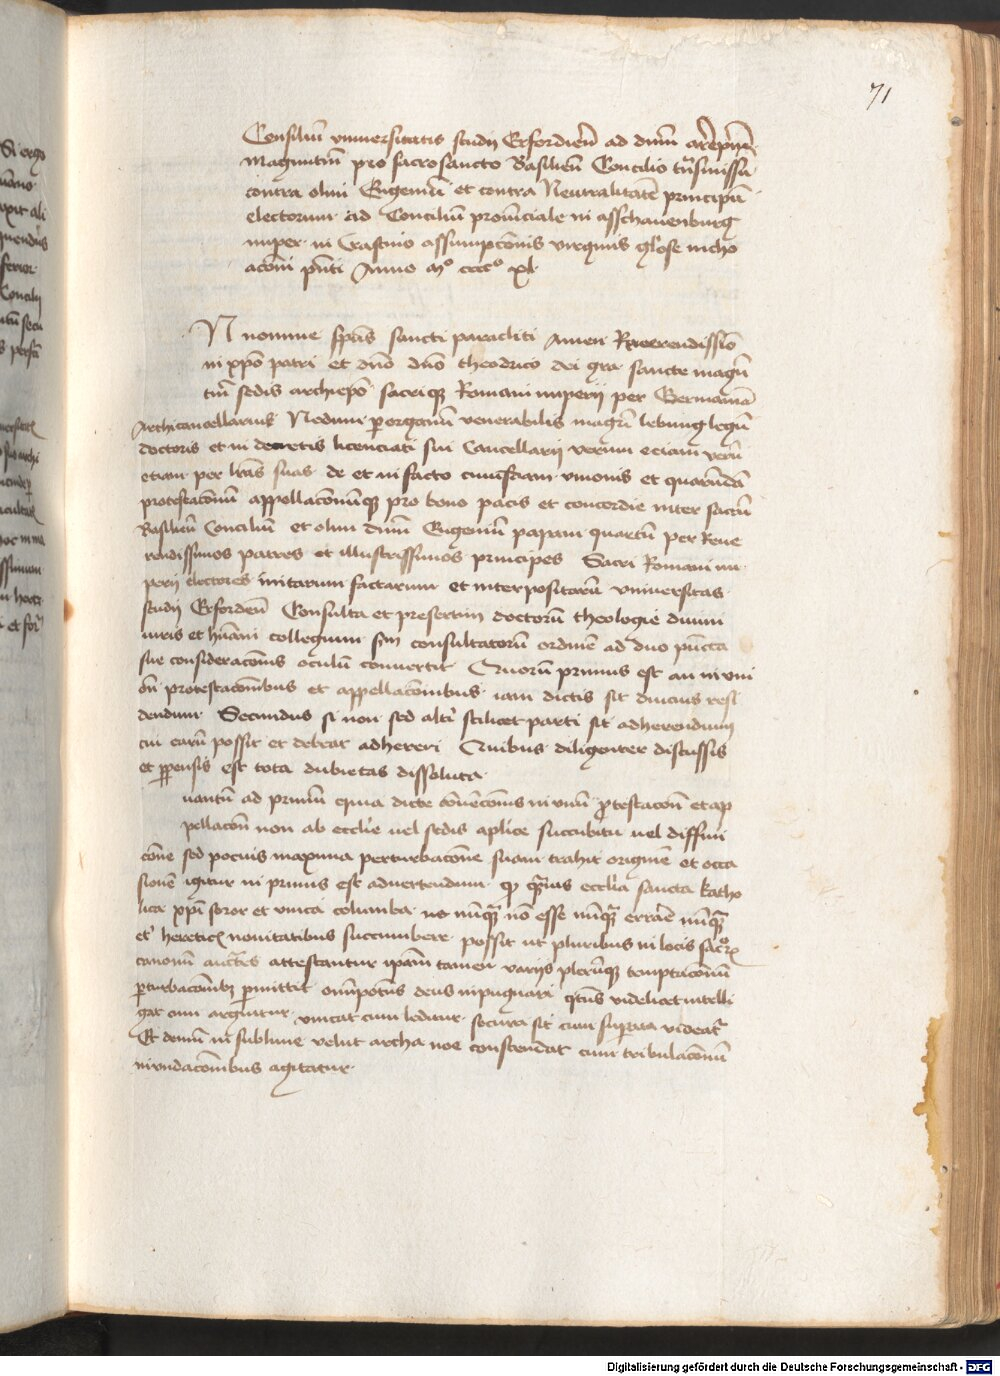 71
Consiliū vniuersitatis studij Erfordieñ ad dnm̄ arc̄hiep̄m
Maguntiñ pro sacrosancto Basilieñ Concilio tn̄smissū
contra olim Eugeniū et contra Neutralitatē principū
electorum ad Conciliū prouinciale in asschauenburg
nuper in Crastino assumpcōnis virginis glōse incho
acom̄ pn̄ti Anno mº ccccº xl
N nomine sp̄us sancti paracliti Amen Reuerendissīo
in xp̄o patri et dn̄o dn̄o theodrico dei gra sancte magū
tiñ sedis archiep̄o sacrique Romani imperij per Germaniā
Archicancellariuſ Nedum per organū venerabilis magr̄i lebung legū
doctoris et in decretis licenciati sui Cancellarij verum eciam verū
etiam per lr̄as suas de et in facto cuiusdam vnionis et quarūdā
protestacōnū appellacōnūque pro bono pacis et concordie inter sacrū
Basilieñ Conciliū et olim dnm̄ Eugeniū papam quartū per Reue
rendissimos patres et illustrissimos principes Sacri Romani im
perij electores initarum factarum et interpositarū vniuersitas
studij Erfordeñ Consulta et presertim doctorū theologie diuini
iuris et hūani collegium sm̄ consultatorū ordinē ad duo pūcta
sue consideracōnis oculū conuertit Quorū primus est an in vni
on̄ protestacōnibus et appellacōnibus iam dictis sit diucius resi
dendum Secundus si non sed alti scilicet parti sit adherendum
cui earū possit et debeat adhereri Quibus diligenter discussis
et ppensis est tota dubietas dissoluta
uantū ad primū quia dicte conuēcōnis in vnū protestacōn̄ et ap
pellacōn̄ non ab ecclīe uel sedis aplīce succubitu uel diffini
cōne sed pocius maxima perturbacōne suam trahit originē et occa
sionē igitur in primis est aduertendum q quāuis ecclīa sancta katho
lica xp̄i soror et vnica columba ne nūquā nō esse nūquā errare nūquā
et heretic nouitatibus succumbere possit ut pluribus in locis sacror
canonū auctes attestantur ipam̄ tamen varijs plerūque temptacōnū
perturbacōnib permittit omīpotens deus inpugnari qtus videlicet intelli
gat cum arguitur vincat cum leditur secura sit cum superata videat
Et demū in sublime velut archa noe conscendat cum tribulacōnū
inundacōnibus agitatur
Digitalisierung gefördert durch die Deutsche Forschungsgemeinschaft - DFG